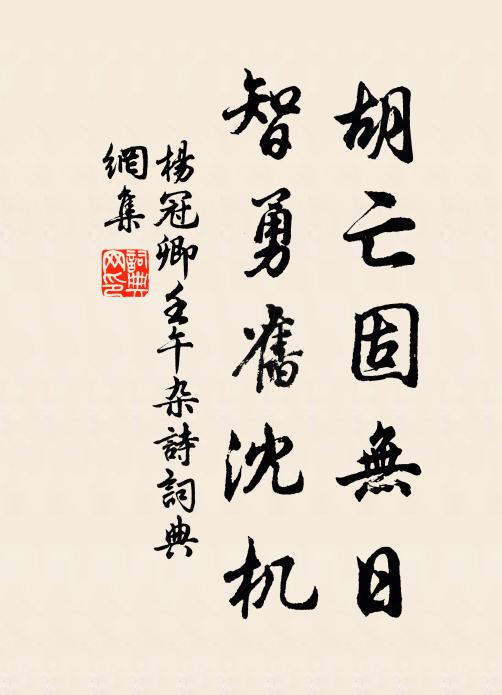 胡亡固無日
智勇舊沈机
楊冠卿壬午杂詩詞典
網集
詞典
网印